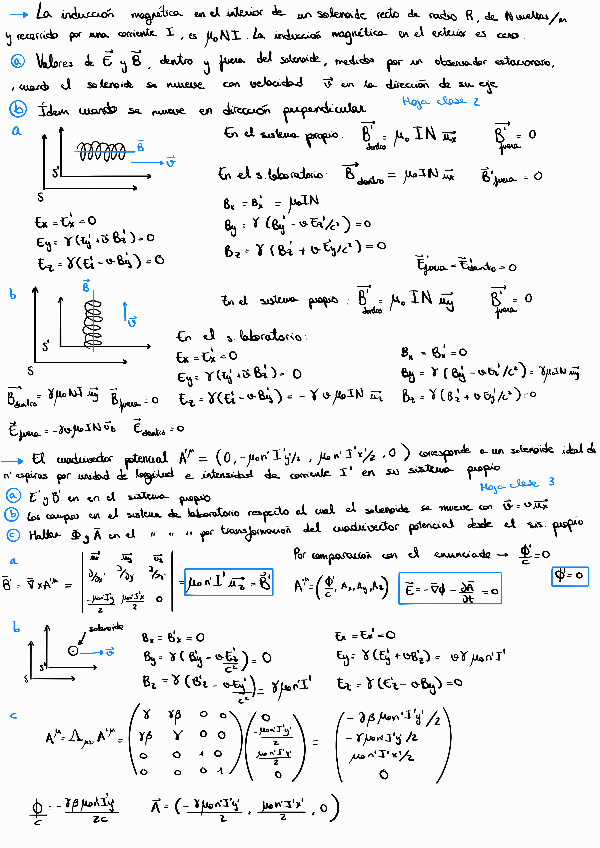 → La inducción magnética en el interior de un solenoide recto de radio R, de N vueltas/m
y recorrido por una corriente I, es μ₀NI. La inducción magnética en el exterior es cero.
ⓐ Valores de E⃗ y B⃗, dentro y fuera del solenoide, medidos por un observador estacionario,
, cuando el solenoide se mueve con velocidad v⃗ en la dirección de su eje
ⓑ Ídem cuando se mueve en dirección perpendicular Hoja clase 2
a
S' S B⃗ v⃗
En el sistema propio: B⃗'dentro = μ₀ I N u⃗x B⃗'fuera = 0
En el s. laboratorio: B⃗dentro = μ₀ I N u⃗x B⃗'fuera = 0
Bx = Bx' = μ₀IN
Ex = Ex' = 0 By = γ (By' - vEz'/c²) = 0
Ey = γ (Ey' + vBz') = 0 Bz = γ (Bz' + vEy'/c²) = 0
Ez = γ (Ez' - vBy') = 0 E⃗'fuera = E⃗'dentro = 0
b
B⃗ v⃗ S' S
En el sistema propio: B⃗'dentro = μ₀ I N u⃗y B⃗'fuera = 0
En el s. laboratorio:
Ex = Ex' = 0 Bx = Bx' = 0
Ey = γ (Ey' + vBz') = 0 By = γ (By' - vEz'/c²) = γμ₀IN u⃗y
B⃗dentro = γμ₀NI u⃗y B⃗fuera = 0 Ez = γ (Ez' - vBy') = -γvμ₀IN u⃗z Bz = γ (Bz' + vEy'/c²) = 0
E⃗fuera = -γvμ₀IN u⃗z E⃗dentro = 0
→ El cuadrivector potencial A'^μ = (0, -μ₀n'I'y'/2, μ₀n'I'x'/2, 0) corresponde a un solenoide ideal de
n' espiras por unidad de longitud e intensidad de corriente I' en su sistema propio
ⓐ E' y B' en en el sistema propio Hoja clase 3
ⓑ Los campos en el sistema de laboratorio respecto al cual el solenoide se mueve con v⃗ = v u⃗x
ⓒ Hallar Φ y A⃗ en el " " " por transformación del cuadrivector potencial desde el sis. propio
a
Por comparación con el enunciado → Φ'/c = 0
B⃗' = ∇⃗ × A'^μ = | u⃗x u⃗y u⃗z ; ∂/∂x' ∂/∂y' ∂/∂z' ; -μ₀n'I'y'/2 μ₀n'I'x'/2 0 | = μ₀n'I' u⃗z = B⃗'
A'^μ = (Φ'/c, Ax, Ay, Az) E⃗' = -∇⃗Φ - ∂A⃗/∂t = 0 Φ' = 0
b
solenoide S' S v⃗
Bx = Bx' = 0 Ex = Ex' = 0
By = γ (By' - vEz'/c²) = 0 Ey = γ (Ey' + vBz') = vγ μ₀n'I'
Bz = γ (Bz' - vEy'/c²) = γμ₀n'I' Ez = γ (Ez' - vBy) = 0
c
A^μ = Λμν A'^μ = ( γ γβ 0 0 ; γβ γ 0 0 ; 0 0 1 0 ; 0 0 0 1 ) ( 0 ; -μ₀n'I'y'/2 ; μ₀n'I'x'/2 ; 0 ) = ( -γβμ₀n'I'y'/2 ; -γμ₀n'I'y'/2 ; μ₀n'I'x'/2 ; 0 )
Φ/c = -γβμ₀n'I'y'/2c A⃗ = (-γμ₀n'I'y'/2, μ₀n'I'x'/2, 0)